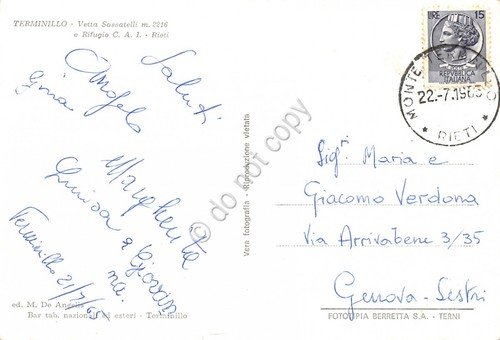 TERMINILLO - Vetta Sassatelli m. 2216
e Rifugio C. A. I. - Rieti
Saluti
Angelo
Gina
Margherita
Luisa e Giovan
na.
Terminillo 21/7/65
ed. M. De Angelis
Bar tab. nazionali ed esteri - Terminillo
Vera fotografia - Riproduzione vietata
do not copy
LIRE 15
REPVBBLICA
ITALIANA
MONTE TERMINILLO
22.-7.1965
* RIETI *
Sig.ri Maria e
Giacomo Verdona
Via Arrivabene 3/35
Genova-Sestri
FOTOCOPIA BERRETTA S.A. - TERNI